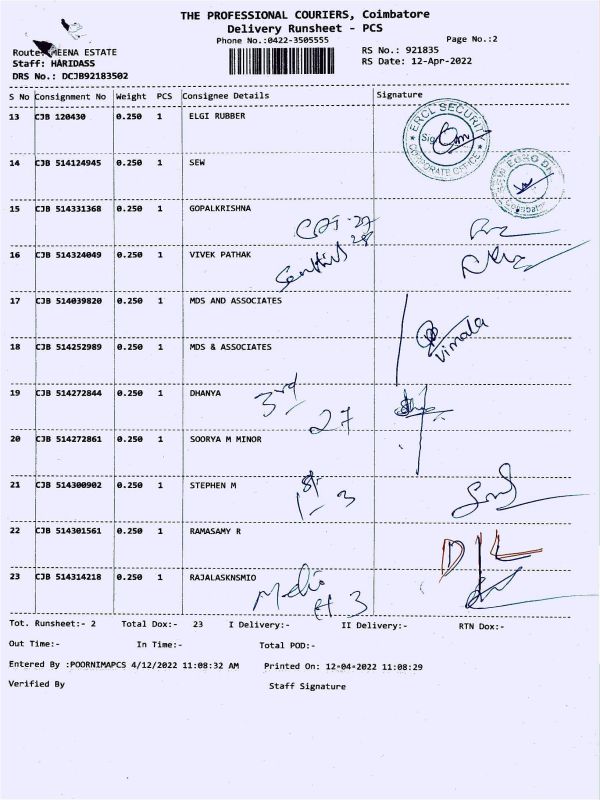 THE PROFESSIONAL COURIERS, Coimbatore
Delivery Runsheet - PCS
Phone No.:0422-3505555
Page No.:2
Route: MEENA ESTATE
RS No.: 921835
Staff: HARIDASS
RS Date: 12-Apr-2022
DRS No.: DCJB92183502
S No Consignment No Weight PCS Consignee Details Signature
13 CJB 120430 0.250 1 ELGI RUBBER
ERCL SECURITY
★ CORPORATE OFFICE ★
14 CJB 514124945 0.250 1 SEW
15 CJB 514331368 0.250 1 GOPALKRISHNA
27
28
16 CJB 514324049 0.250 1 VIVEK PATHAK
17 CJB 514039820 0.250 1 MDS AND ASSOCIATES
Vimala
18 CJB 514252989 0.250 1 MDS & ASSOCIATES
19 CJB 514272844 0.250 1 DHANYA
3rd
27
20 CJB 514272861 0.250 1 SOORYA M MINOR
21 CJB 514300902 0.250 1 STEPHEN M
1st - 3
22 CJB 514301561 0.250 1 RAMASAMY R
D/L
23 CJB 514314218 0.250 1 RAJALASKNSMIO
3
Tot. Runsheet:- 2 Total Dox:- 23 I Delivery:- II Delivery:- RTN Dox:-
Out Time:- In Time:- Total POD:-
Entered By :POORNIMAPCS 4/12/2022 11:08:32 AM Printed On: 12-04-2022 11:08:29
Verified By Staff Signature